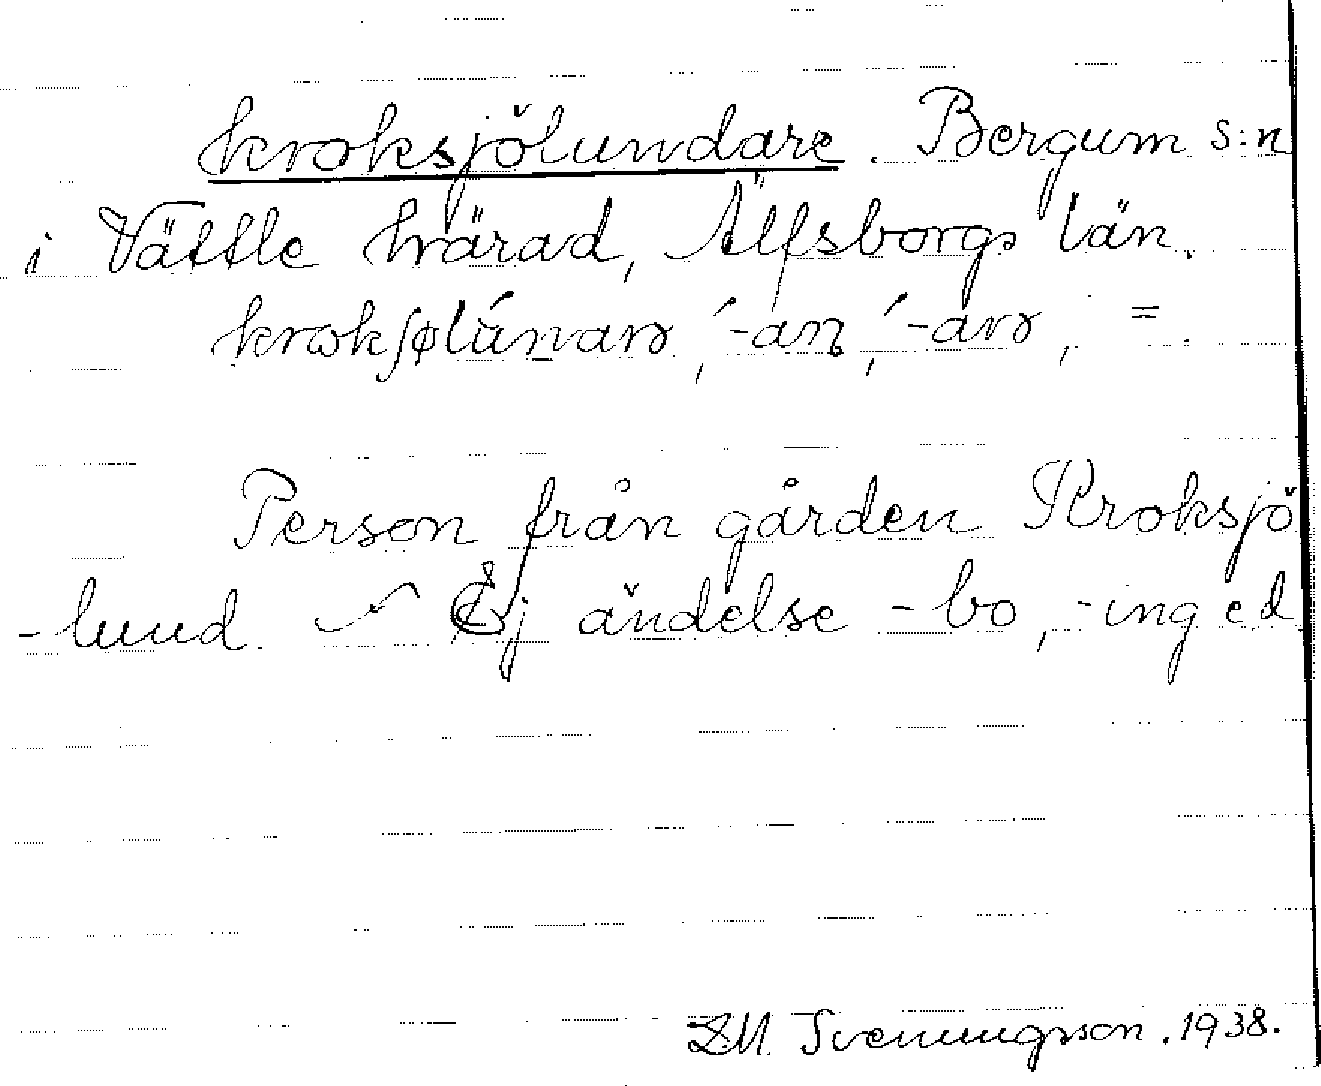 kroksjölundare. Bergum s:n
i Vättle härad, Älfsborgs län.
-an, -arɘ, =
Person från gården Kroksjö
-lund. Ej ändelse -bo, -ing e d
Svenningsson. 1938.